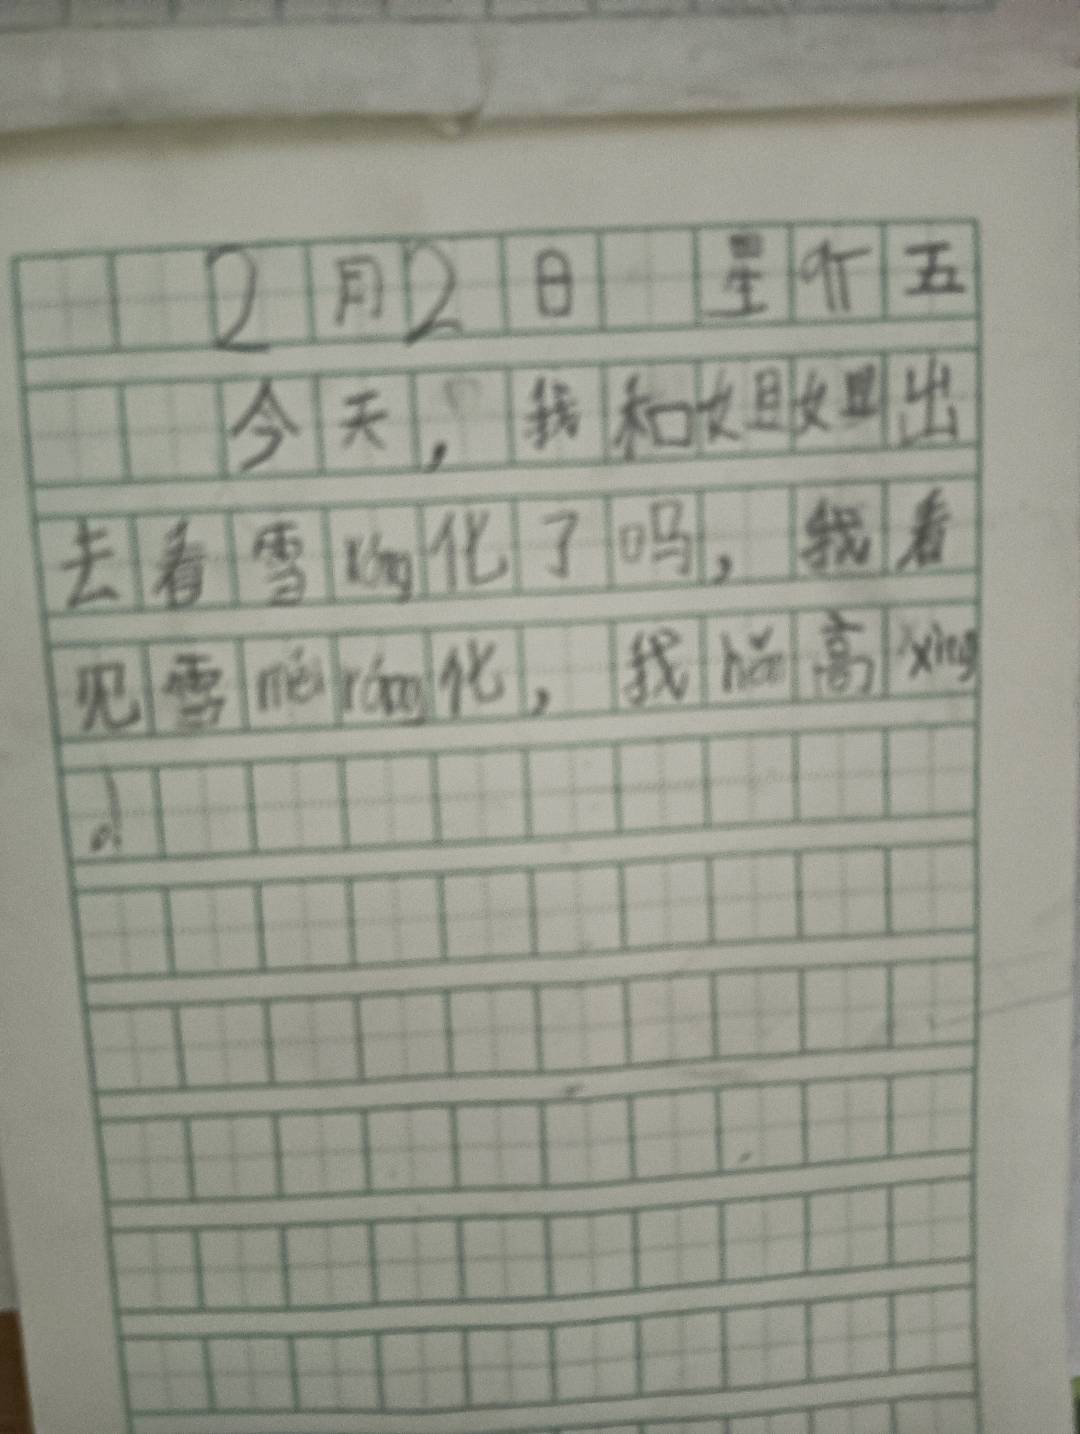 2月2日 星期五
今天，我和姐姐出
去看雪róng化了吗，我看
见雪méi róng化，我hěn高xìng